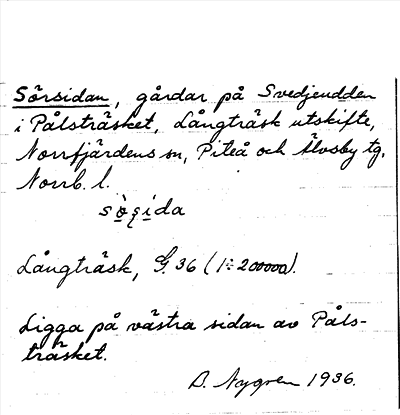 Sörsidan, gårdar på Svedjeudden
i Pålsträsket, Långträsk utskifte,
Norrfjärdens sn, Piteå och Älvsby tg,
Norrb. l.
sògida
Långträsk, G. 36 (1:200000).
Ligga på västra sidan av Påls-
träsket.
D. Nygren 1936.